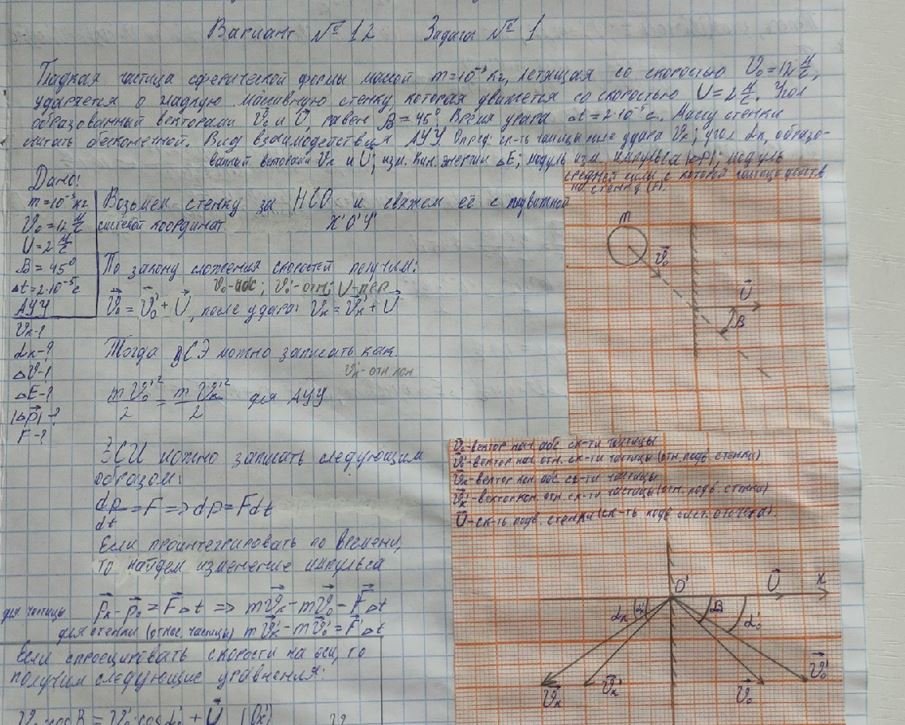 Вариант № 12 Задача № 1
Гладкая частица сферической формы массой m=10⁻³ кг, летящая со скоростью V₀=12 м/с,
ударяется о гладкую массивную стенку, которая движется со скоростью U=2 м/с. Угол
образованный векторами V₀ и U равен B=45° Время удара Δt=2·10⁻⁵ с. Массу стенки
считать бесконечной. Вид взаимодействия АУУ. Опред. ск-ть частицы после удара Vк; угол αк, образо-
ванный векторами Vк и U; изм. кин. энергии ΔE; модуль изм. импульса |ΔP|; модуль
средней силы с которой частица действ.
на стенку (F).
Дано:
m=10⁻³ кг
V₀=12 м/с
U=2 м/с
B=45°
Δt=2·10⁻⁵ с
АУУ
Vк-?
αк-?
ΔV-?
ΔE-?
|Δp|-?
F-?
Возьмем стенку за НСО и свяжем её с подвижной
системой координат X'O'Y'
По закону сложения скоростей получим:
V₀-абс; V₀'-отн; U-пер
V₀=V₀'+U, после удара: Vк=Vк'+U
Тогда ЗСЭ можно записать как
Vк'-отн кон
mV₀'²/2=mVк'²/2 для АУУ
ЗСИ можно записать следующим
образом:
dp/dt=F=>dp=Fdt
Если проинтегрировать по времени,
то найдем изменение импульса
для частицы pк-p₀=FΔt => mVк-mV₀=FΔt
для стенки (относ. частицы) mVк'-mV₀'=FΔt
Если спроецировать скорости на оси, то
получим следующие уравнения:
V₀ cosB = V₀' cosα₀' + U (Ox')
m
V₀
U
B
V₀-вектор нач. абс. ск-ти частицы
V₀'-вектор нач. отн. ск-ти частицы (отн. подв. стенки)
Vк-вектор кон. абс. ск-ти частицы
Vк'-вектор кон. отн. ск-ти частицы (отн. подв. стенки)
U-ск-ть подв. стенки (ск-ть подв. сист. отсчёта).
O' U x
αк B α₀'
Vк Vк' V₀ V₀'